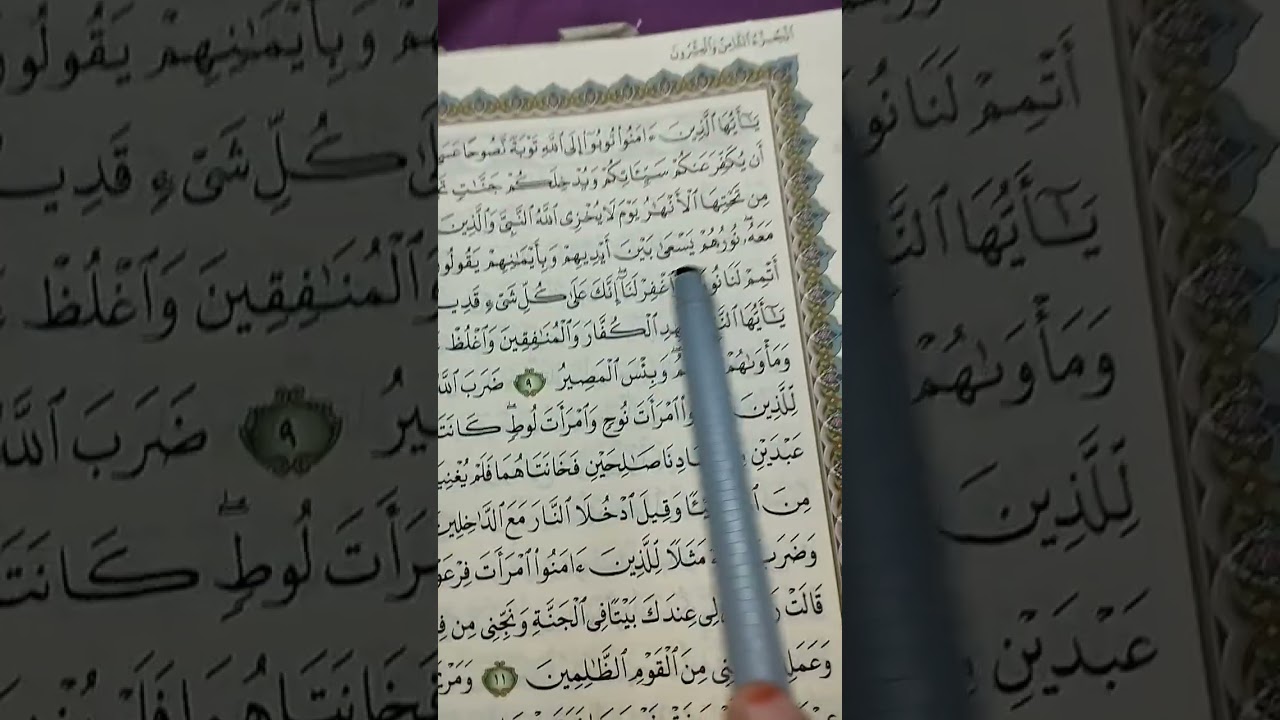 الجزء الثامن والعشرون
يَٰٓأَيُّهَا ٱلَّذِينَ ءَامَنُوا۟ تُوبُوٓا۟ إِلَى ٱللَّهِ تَوْبَةً نَّصُوحًا
أَن يُكَفِّرَ عَنكُمْ سَيِّـَٔاتِكُمْ وَيُدْخِلَكُمْ جَنَّٰتٍ
مِن تَحْتِهَا ٱلْأَنْهَٰرُ يَوْمَ لَا يُخْزِى ٱللَّهُ ٱلنَّبِىَّ وَٱلَّذِينَ
مَعَهُۥ ۖ نُورُهُمْ يَسْعَىٰ بَيْنَ أَيْدِيهِمْ وَبِأَيْمَٰنِهِمْ يَقُولُو
أَتْمِمْ لَنَا ٱغْفِرْ لَنَآ ۖ إِنَّكَ عَلَىٰ كُلِّ شَىْءٍ قَدِي
يَٰٓأَيُّهَا ٱلْكُفَّارَ وَٱلْمُنَٰفِقِينَ وَٱغْلُظْ
وَمَأْوَىٰهُمْ وَبِئْسَ ٱلْمَصِيرُ ٩ ضَرَبَ ٱللَّهُ
لِّلَّذِينَ ٱمْرَأَتَ نُوحٍ وَٱمْرَأَتَ لُوطٍ ۖ كَانَتَا
عَبْدَيْنِ صَٰلِحَيْنِ فَخَانَتَاهُمَا فَلَمْ يُغْنِيَا
مِنَ وَقِيلَ ٱدْخُلَا ٱلنَّارَ مَعَ ٱلدَّٰخِلِينَ
وَضَرَبَ مَثَلًا لِّلَّذِينَ ءَامَنُوا۟ ٱمْرَأَتَ فِرْعَوْ
قَالَتْ لِى عِندَكَ بَيْتًا فِى ٱلْجَنَّةِ وَنَجِّنِى مِن
وَعَمَلِهِۦ مِنَ ٱلْقَوْمِ ٱلظَّٰلِمِينَ ١١ وَمَرْيَمَ